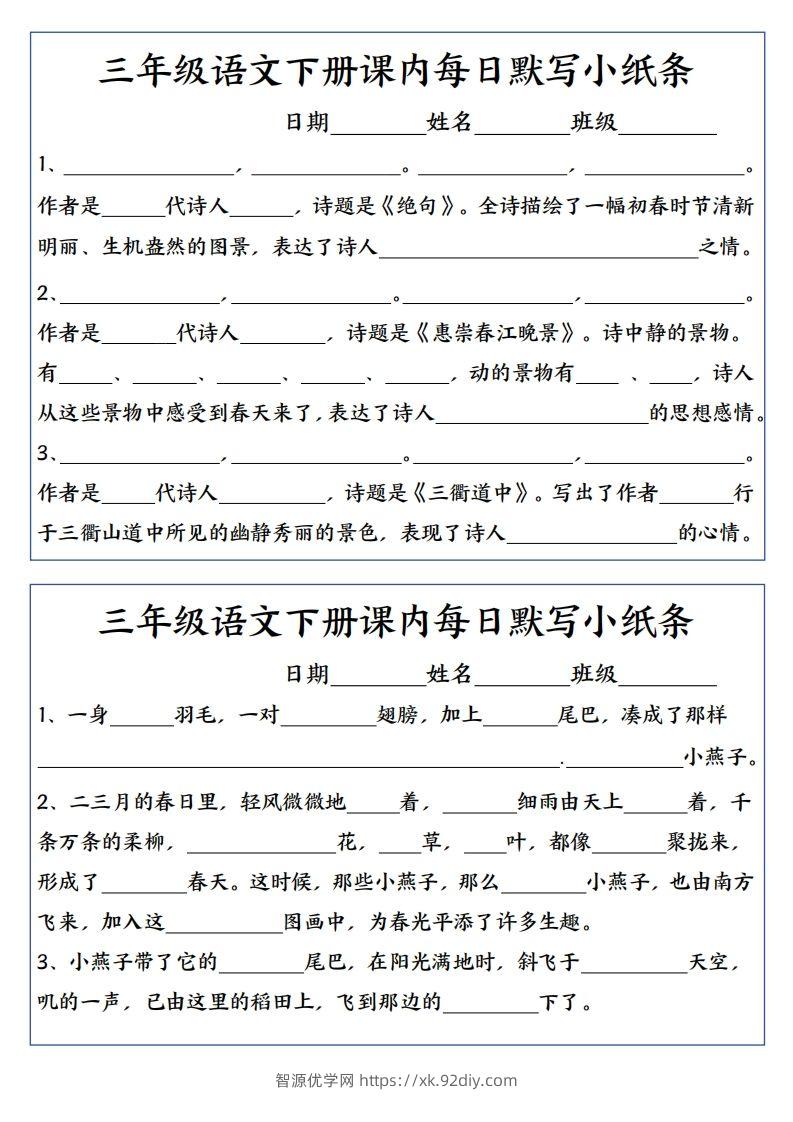 三年级语文下册课内每日默写小纸条
日期________姓名________班级________
1、________________，______________。______________，_______________。
作者是______代诗人______，诗题是《绝句》。全诗描绘了一幅初春时节清新
明丽、生机盎然的图景，表达了诗人______________________________之情。
2、_______________，_______________。________________，_______________。
作者是_______代诗人________，诗题是《惠崇春江晚景》。诗中静的景物。
有_____、______、______、______、______，动的景物有____ 、____，诗人
从这些景物中感受到春天来了，表达了诗人____________________的思想感情。
3、_______________，________________。_______________，_______________。
作者是_____代诗人__________，诗题是《三衢道中》。写出了作者_______行
于三衢山道中所见的幽静秀丽的景色，表现了诗人________________的心情。
三年级语文下册课内每日默写小纸条
日期________姓名________班级________
1、一身______羽毛，一对_________翅膀，加上_______尾巴，凑成了那样
_________________________________________________.___________小燕子。
2、二三月的春日里，轻风微微地_____着，_______细雨由天上______着，千
条万条的柔柳，______________花，____草，____叶，都像_______聚拢来，
形成了________春天。这时候，那些小燕子，那么________小燕子，也由南方
飞来，加入这___________图画中，为春光平添了许多生趣。
3、小燕子带了它的________尾巴，在阳光满地时，斜飞于__________天空，
叽的一声，已由这里的稻田上，飞到那边的_________下了。
智源优学网 https://xk.92diy.com